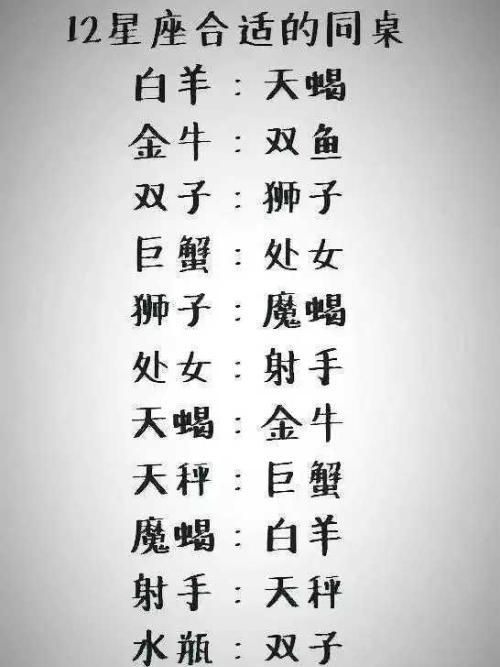 12星座合适的同桌
白羊：天蝎
金牛：双鱼
双子：狮子
巨蟹：处女
狮子：魔蝎
处女：射手
天蝎：金牛
天秤：巨蟹
魔蝎：白羊
射手：天秤
水瓶：双子